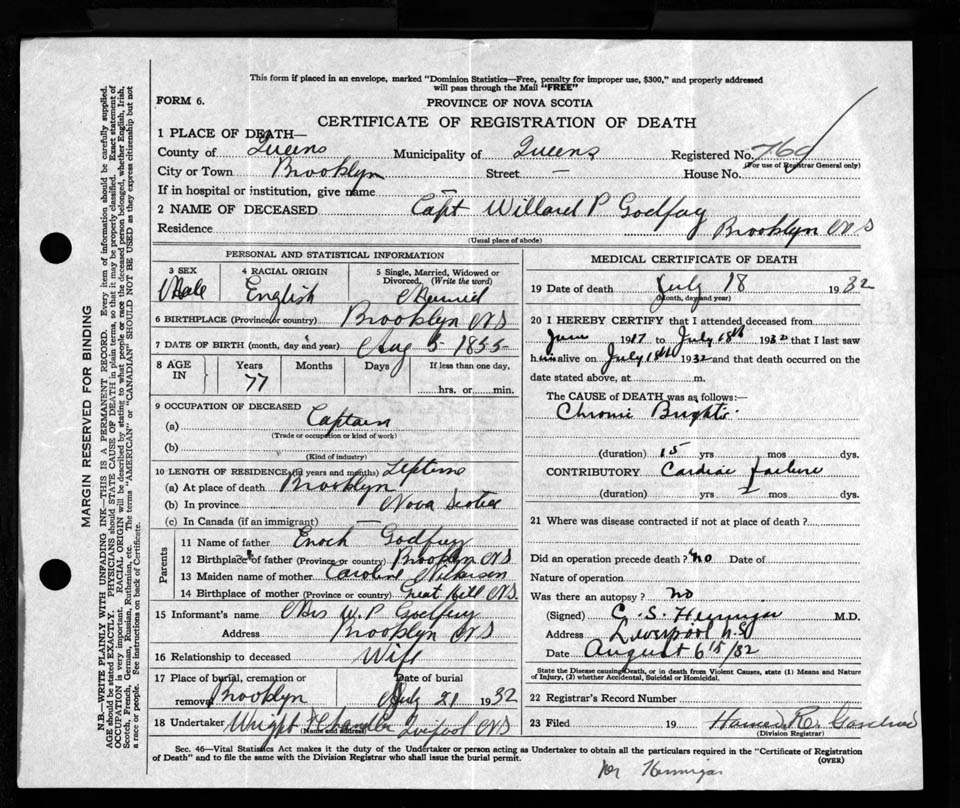 This form if placed in an envelope, marked "Dominion Statistics—Free, penalty for improper use, $300," and properly addressed
will pass through the Mail "FREE"
FORM 6.
PROVINCE OF NOVA SCOTIA
CERTIFICATE OF REGISTRATION OF DEATH
1 PLACE OF DEATH—
County of Queens Municipality of Queens Registered No.
(For use of Registrar General only)
City or Town Brooklyn Street — House No.
If in hospital or institution, give name —
2 NAME OF DECEASED Capt Willard P Godfrey
Residence Brooklyn NS
(Usual place of abode)
PERSONAL AND STATISTICAL INFORMATION
3 SEX 4 RACIAL ORIGIN 5 Single, Married, Widowed or
Divorced. (Write the word)
Male English Married
6 BIRTHPLACE (Province or country) Brooklyn NS
7 DATE OF BIRTH (month, day and year) Aug 5 1855
8 AGE Years Months Days If less than one day,
IN 77 hrs. or min.
9 OCCUPATION OF DECEASED
(a) Captain
(Trade or occupation or kind of work)
(b)
(Kind of industry)
10 LENGTH OF RESIDENCE (in years and months) Lifetime
(a) At place of death Brooklyn
(b) In province Nova Scotia
(c) In Canada (if an immigrant) —
Parents
11 Name of father Enoch Godfrey
12 Birthplace of father (Province or country) Brooklyn NS
13 Maiden name of mother Caroline Nickerson
14 Birthplace of mother (Province or country) Great Hill NS
15 Informant's name Mrs W. P Godfrey
Address Brooklyn NS
16 Relationship to deceased Wife
17 Place of burial, cremation or Date of burial
removal Brooklyn July 21 1932
18 Undertaker Wright & Chandler Liverpool NS
(Name and address)
MEDICAL CERTIFICATE OF DEATH
19 Date of death July 18 1932
(Month, day and year)
20 I HEREBY CERTIFY that I attended deceased from
June 1917 to July 18th 1932 that I last saw
him alive on July 18th 1932 and that death occurred on the
date stated above, at m.
The CAUSE OF DEATH was as follows:—
Chronic Brights
(duration) 15 yrs mos dys.
CONTRIBUTORY Cardiac failure
(duration) yrs mos dys.
21 Where was disease contracted if not at place of death?
Did an operation precede death? no Date of
Nature of operation
Was there an autopsy? no
(Signed) C. S. Hennigar M.D.
Address Liverpool N.S.
Date August 6th/32
State the Disease causing Death, or in death from Violent Causes, state (1) Means and Nature
of Injury, (2) whether Accidental, Suicidal or Homicidal.
22 Registrar's Record Number
23 Filed 19
(Division Registrar)
Sec. 46—Vital Statistics Act makes it the duty of the Undertaker or person acting as Undertaker to obtain all the particulars required in the "Certificate of Registration
of Death" and to file the same with the Division Registrar who shall issue the burial permit.
(OVER)
Hennigar
MARGIN RESERVED FOR BINDING
N.B.—WRITE PLAINLY WITH UNFADING INK—THIS IS A PERMANENT RECORD. Every item of information should be carefully supplied.
AGE should be stated EXACTLY. PHYSICIANS should STATE CAUSE OF DEATH in plain terms, so that it may be properly classified. Exact statement of
OCCUPATION is very important. RACIAL ORIGIN will be described by stating to what people or race the deceased person belonged, whether English, Irish,
Scotch, French, German, Russian, Ruthenian, etc. The terms "AMERICAN" or "CANADIAN" SHOULD NOT BE USED as they express citizenship but not
a race or people. See instructions on back of Certificate.